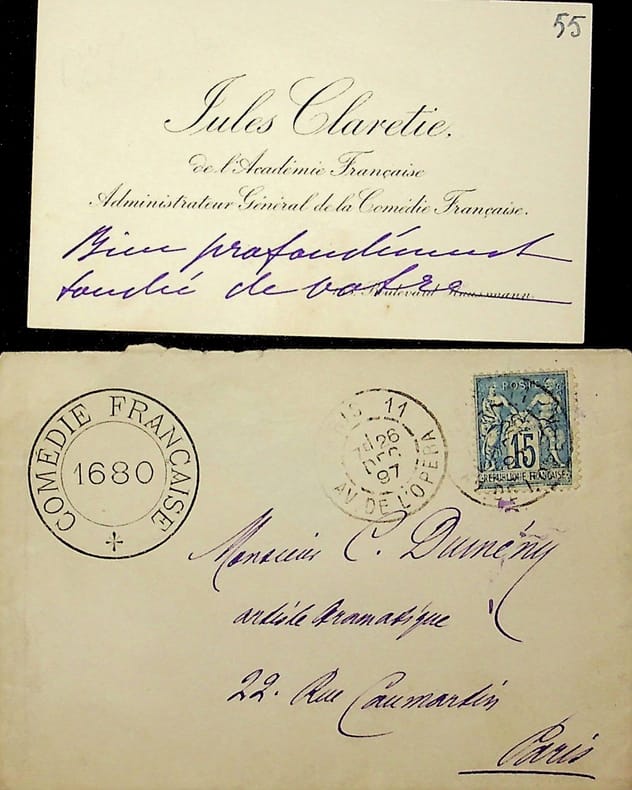 55
Jules Claretie.
de l'Académie Française
Administrateur Général de la Comédie Française.
Bien profondément
touché de votre
Boulevard Haussmann.
COMÉDIE FRANÇAISE
1680
PARIS 11
26
DEC
97
AV. DE L'OPÉRA
POSTES
15
REPUBLIQUE FRANÇAISE
Monsieur C. Dumény
artiste dramatique
22. Rue Caumartin
Paris